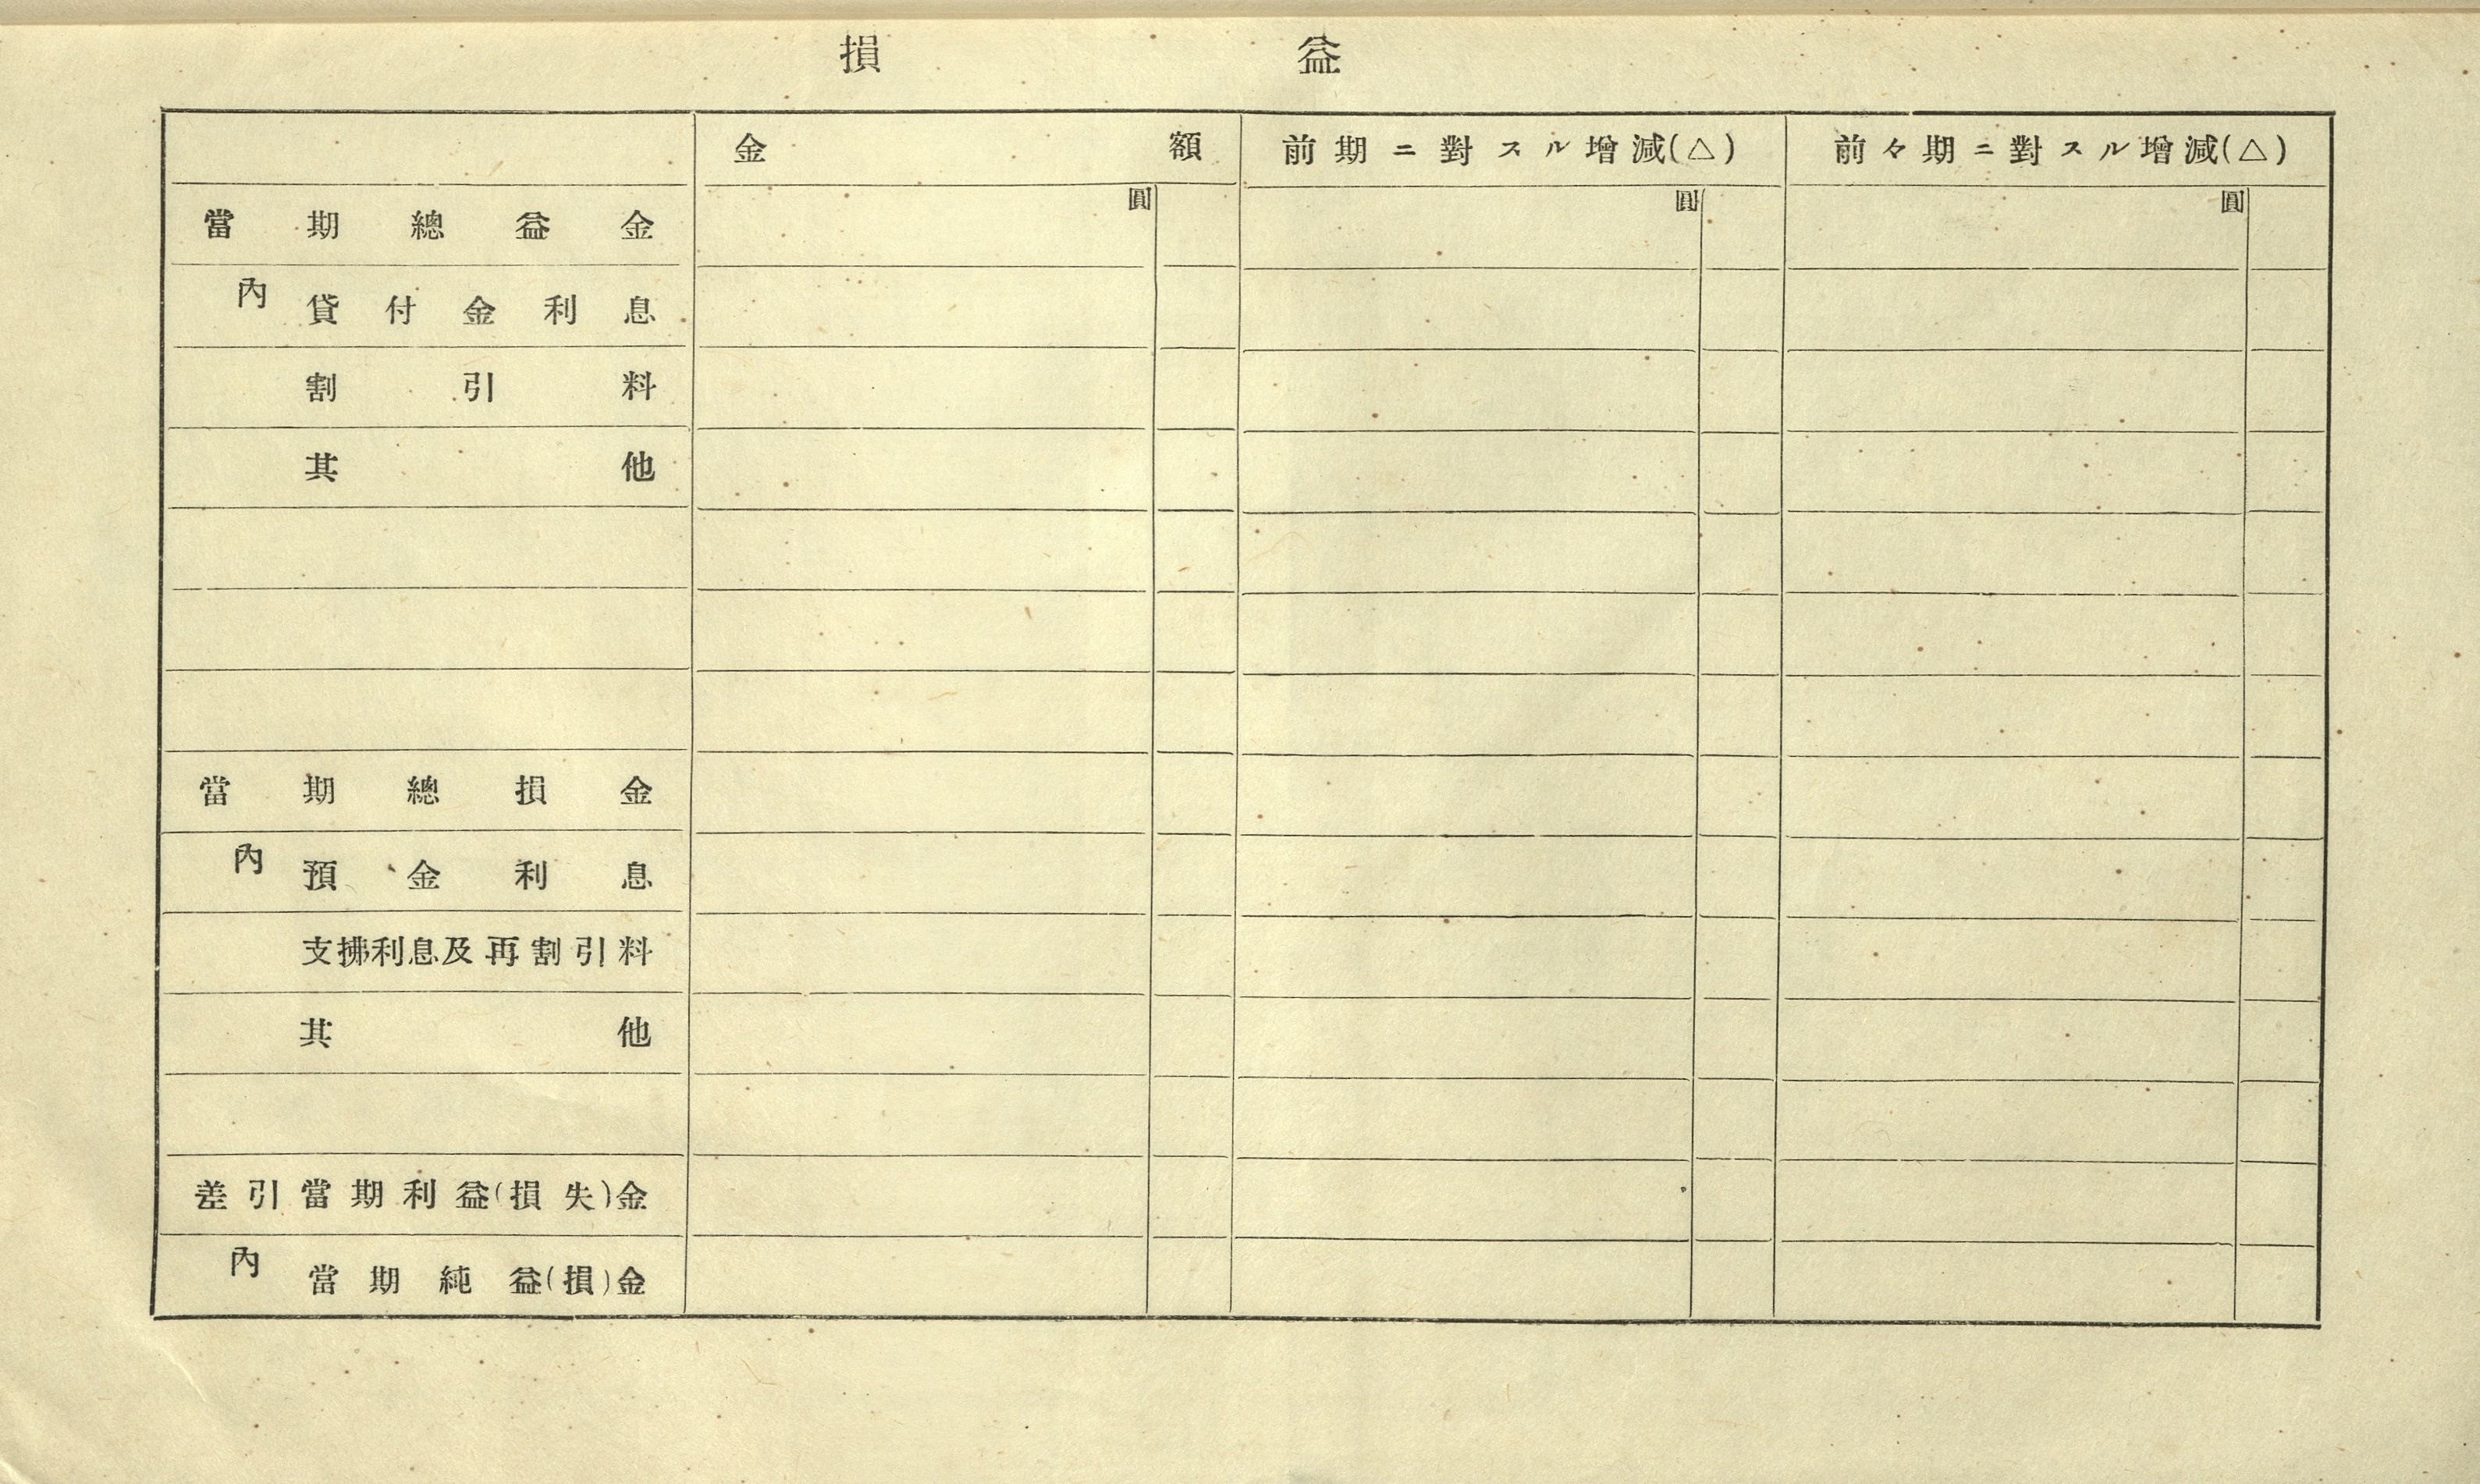 損益
金額 前期ニ對スル增減(△) 前々期ニ對スル增減(△)
圓 圓 圓
當期總益金
內 貸付金利息
割引料
其他
當期總損金
內 預金利息
支拂利息及再割引料
其他
差引當期利益(損失)金
內 當期純益(損)金